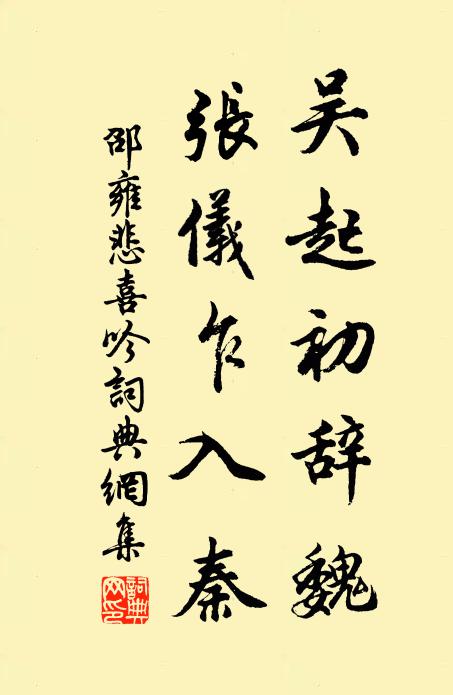 吴起初辞魏
張儀乍入秦
邵雍悲喜吟詞典網集
詞典網印